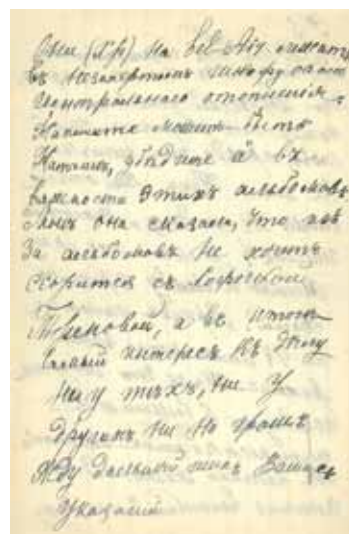 Онѣ (хр) на bel Air лежатъ
въ незапертомъ шкафу около
центральнаго отопленія,
Напишите можетъ быть
Наташѣ, убѣдите ее въ
важности этихъ альбомовъ
мнѣ она сказала, что изъ
за альбомовъ не хочетъ
ссорится съ
а въ итогѣ
интересъ къ этому
ни у тѣхъ, ни у
другихъ, ни на грошъ
Жду дальнѣйшихъ Вашихъ
указаній